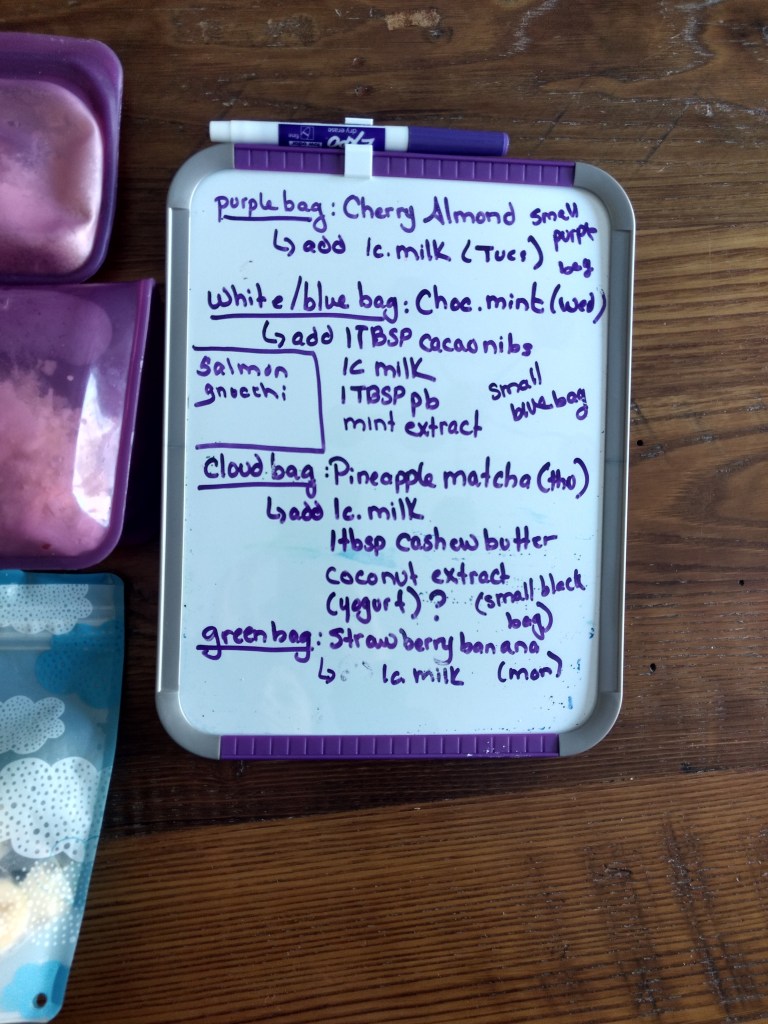 EXPO
dry erase
purple bag: Cherry Almond small
purple
bag
↳ add 1c. milk (Tues)
White/blue bag: Choc. mint (wed)
↳ add 1TBSP cacao nibs
1c milk
1TBSP pb
mint extract
small
blue bag
Salmon
gnocchi
Cloud bag: Pineapple matcha (tho)
↳ add 1c. milk
1tbsp cashew butter
coconut extract
(yogurt)? (small black
bag)
green bag: Strawberry banana
↳ 1c. milk (mon)